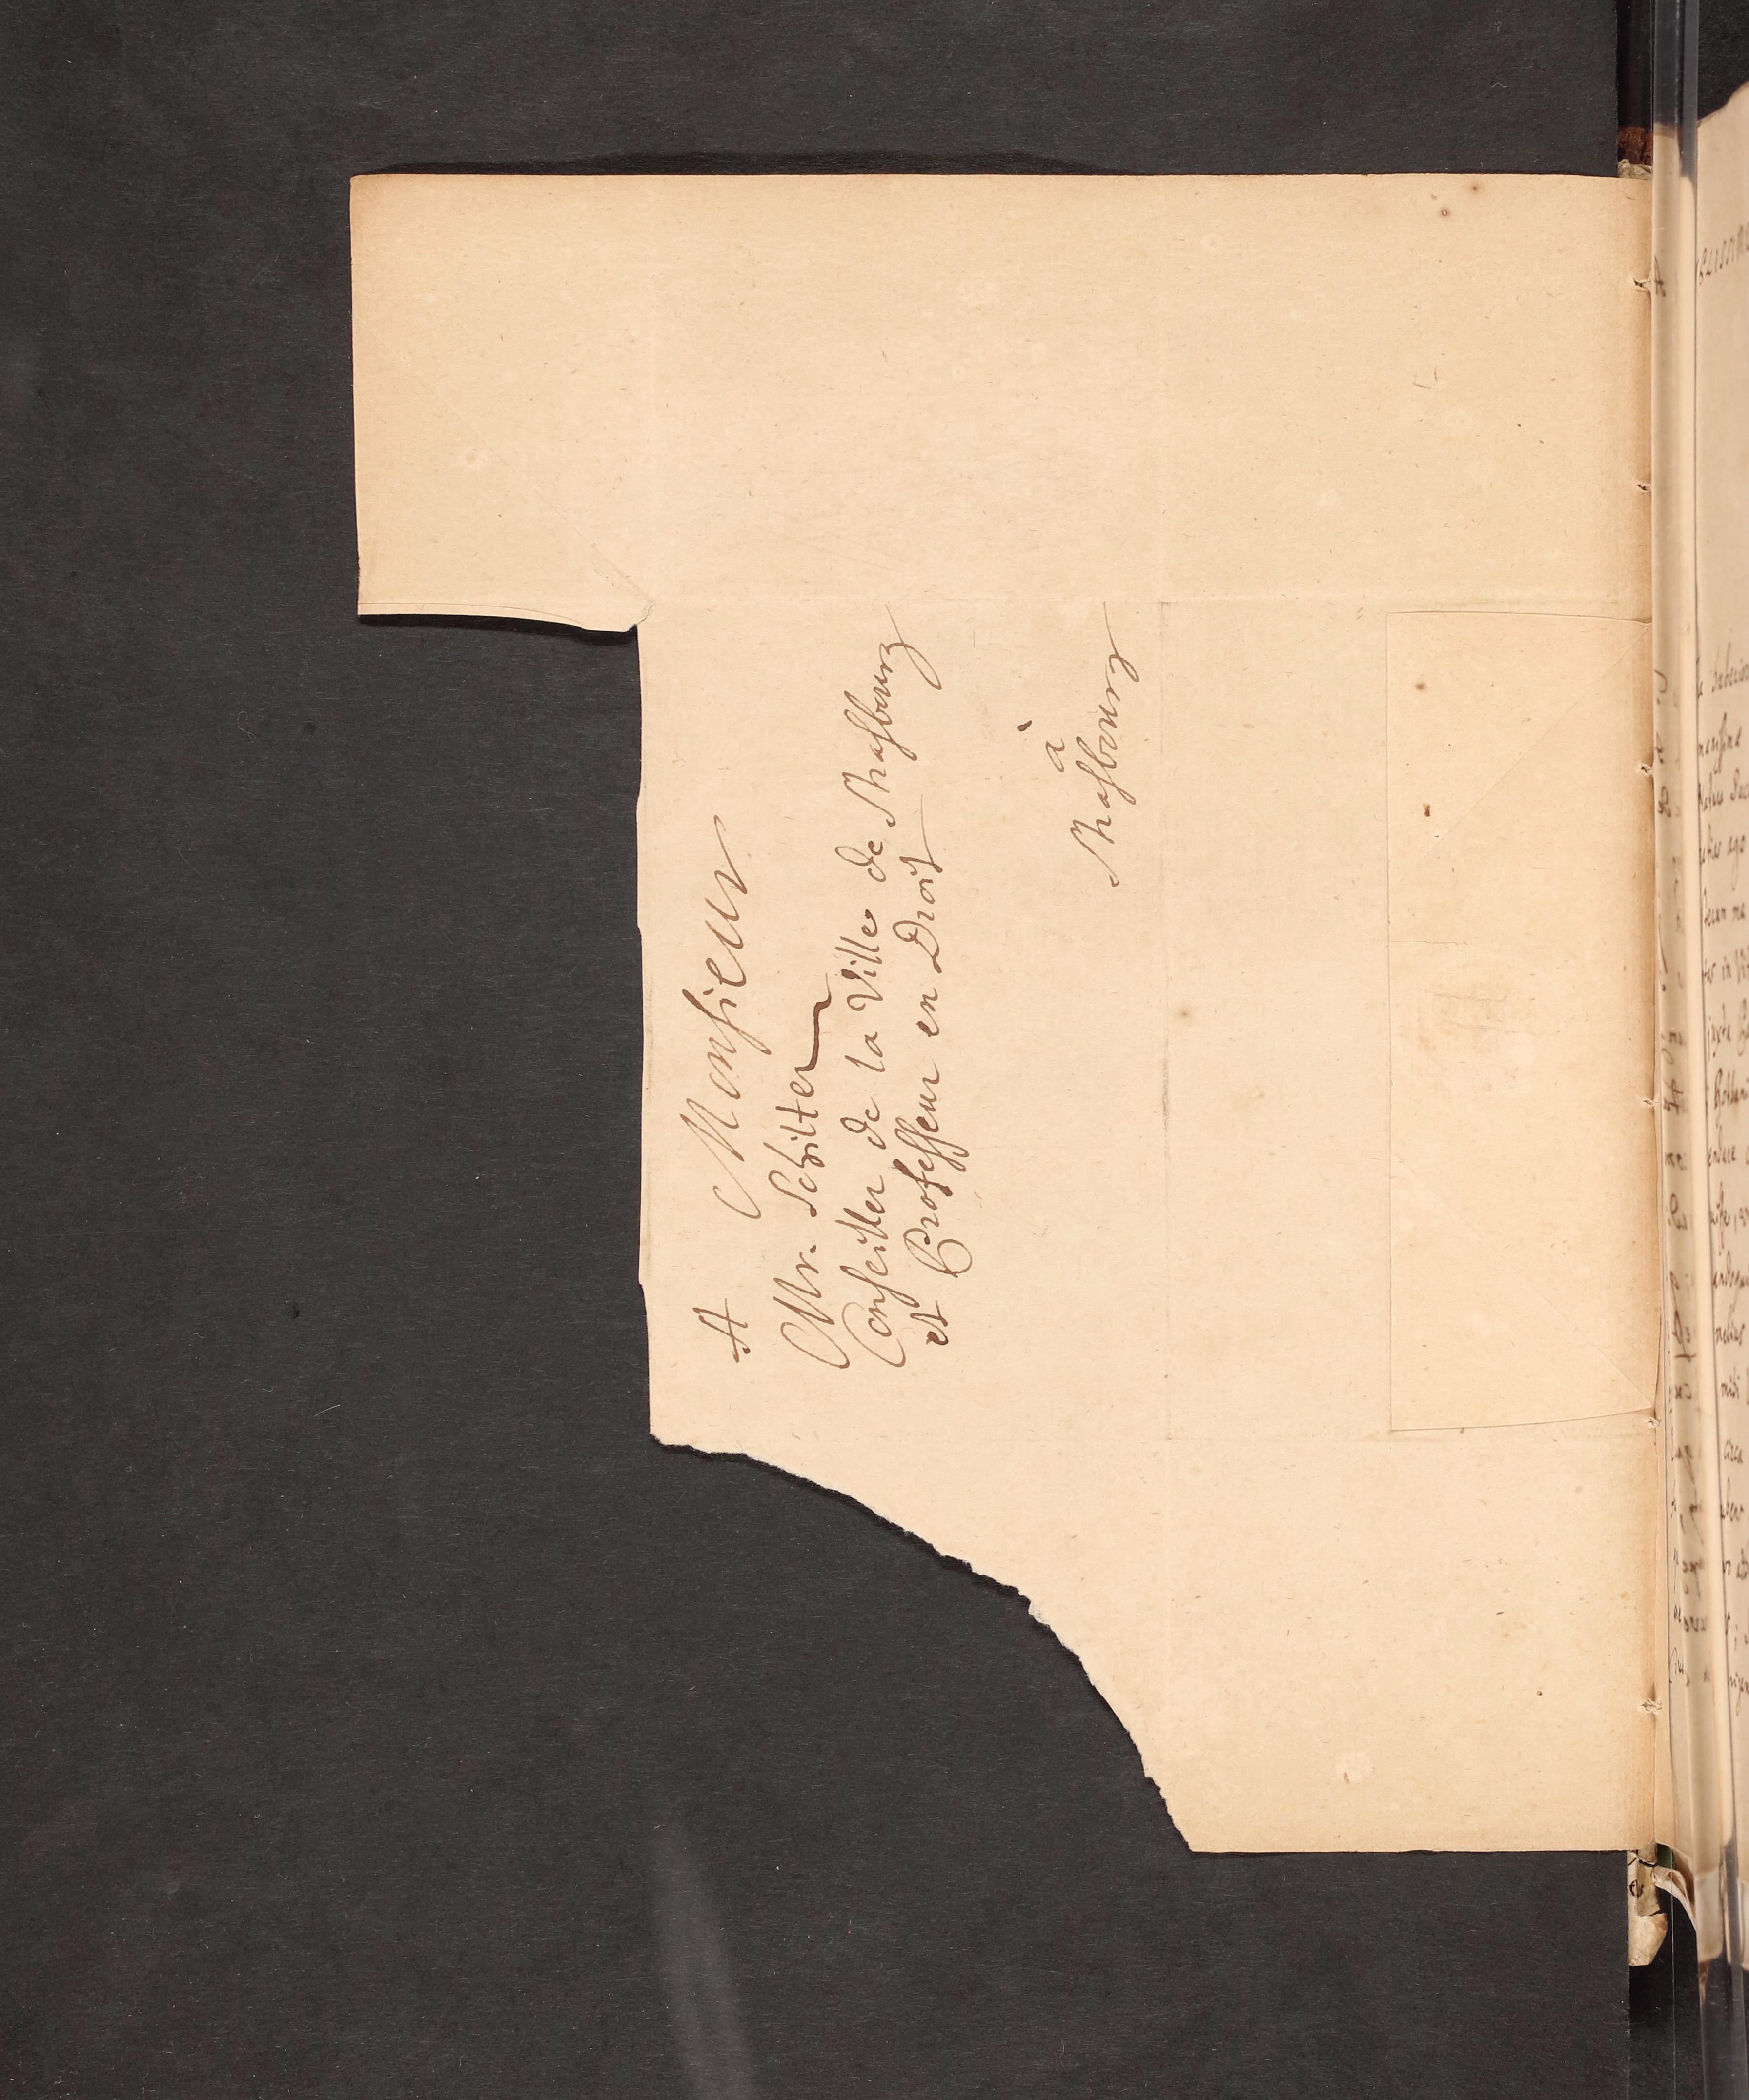 A Monsieur
Mr. Schilter
Conseiller de la Ville de Strasbourg
et Professeur en Droit
à
Strasbourg